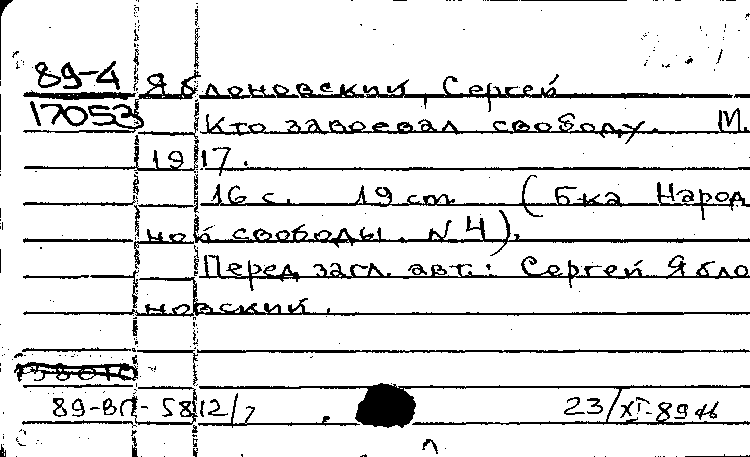 89-4 Яблоновский, Сергей
17053 Кто завоевал свободу. М.
1917.
16 с. 19 см. (Б-ка Народ
ной свободы. N 4).
Перед загл. авт.: СергейЯбло
новский.
89-ВП-5812/7 23/XI-89